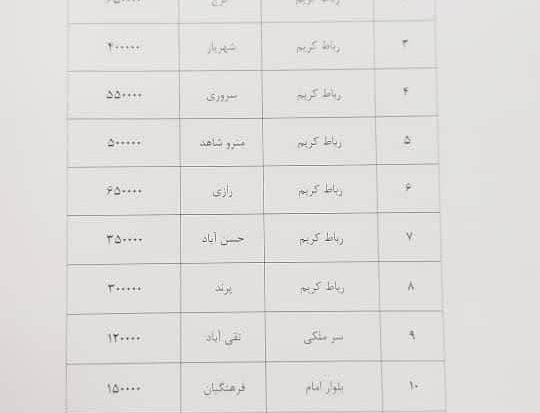 رباط کریم کرج ۶۵۰۰۰۰
۳ رباط کریم شهریار ۴۰۰۰۰۰
۴ رباط کریم سروری ۵۵۰۰۰۰
۵ رباط کریم مترو شاهد ۵۰۰۰۰۰
۶ رباط کریم رازی ۶۵۰۰۰۰
۷ رباط کریم حسن آباد ۳۵۰۰۰۰
۸ رباط کریم پرند ۳۰۰۰۰۰
۹ سر ملکی تقی آباد ۱۲۰۰۰۰
۱۰ بلوار امام فرهنگیان ۱۵۰۰۰۰